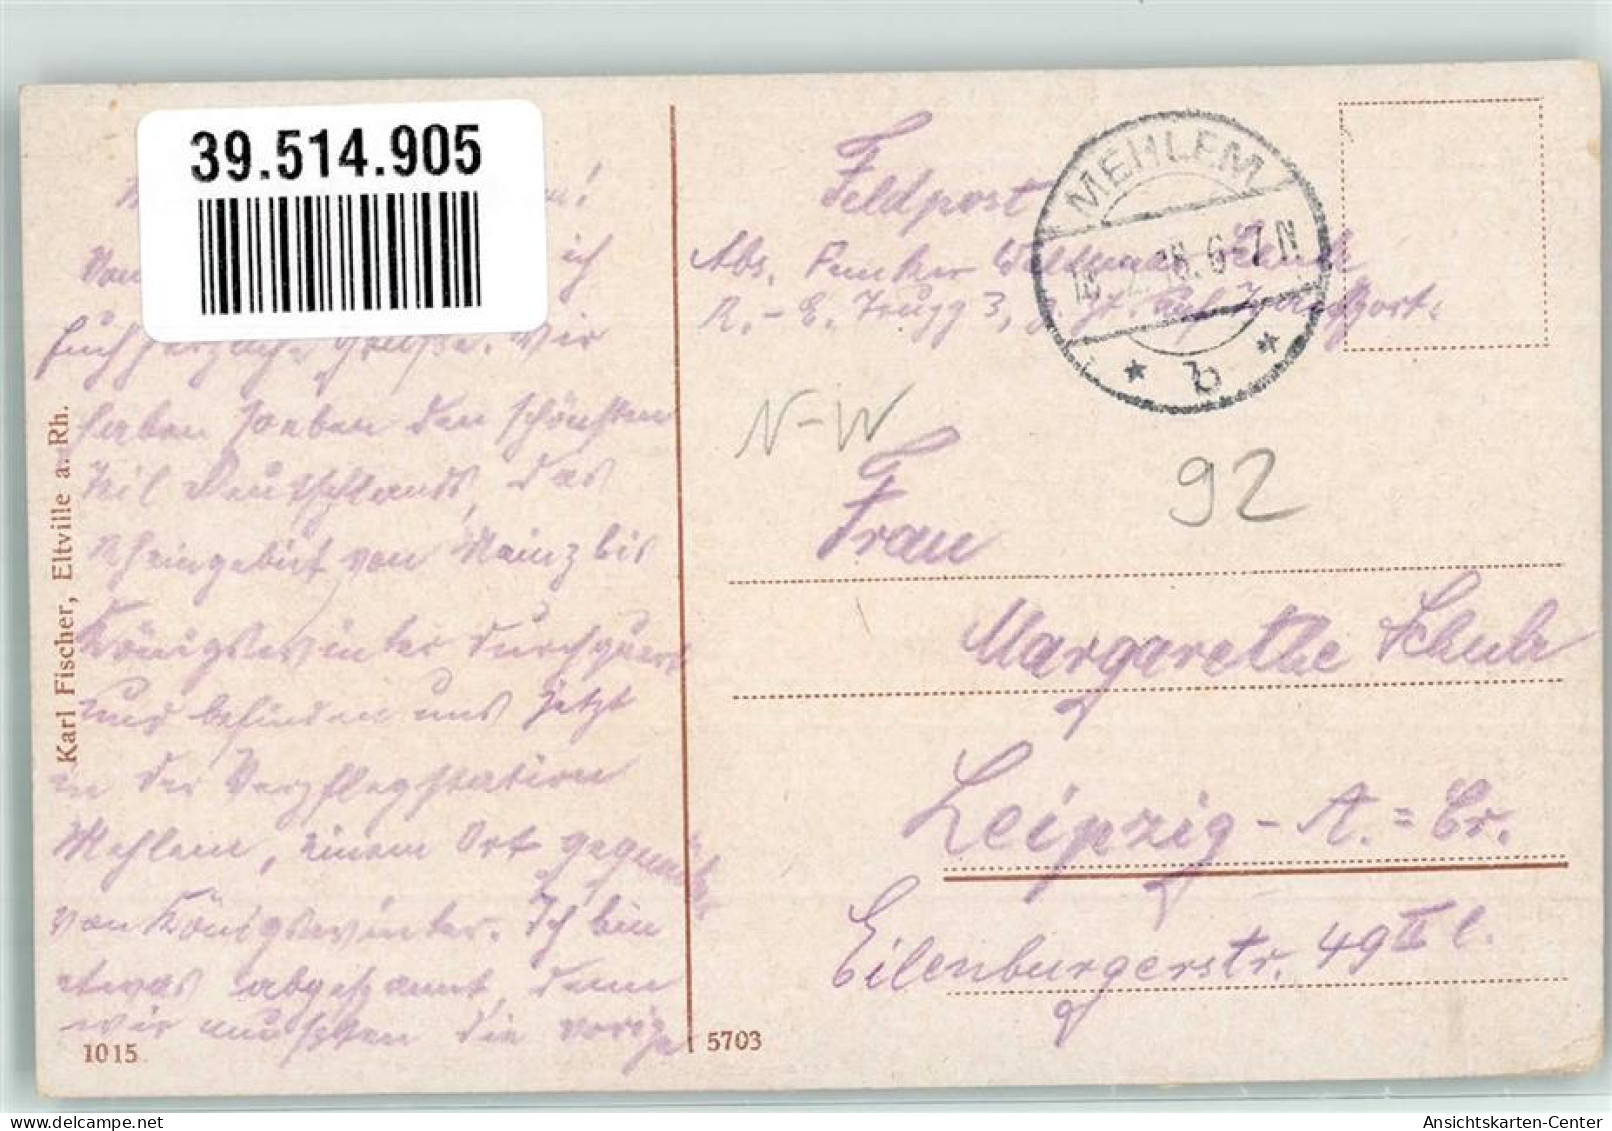 39.514.905
ich
herzliche Grüße. Wir
haben soeben den schönsten
Teil Deutschlands, das
Rheingebiet von Mainz bis
Königswinter durchquert
und befinden uns jetzt
in der Verpflegstation
Mehlem, einem Ort gegenüber
von Königswinter. Ich bin
etwas abgespannt, denn
wir mussten die vorige
1015
Karl Fischer, Eltville a. Rh.
5703
Feldpost
MEHLEM
6-7 N
* b *
Abs. Funker
N-W
92
Frau
Margarethe Schulz
Leipzig - A. = Cr.
Eilenburgerstr. 49 II l.
Ansichtskarten-Center